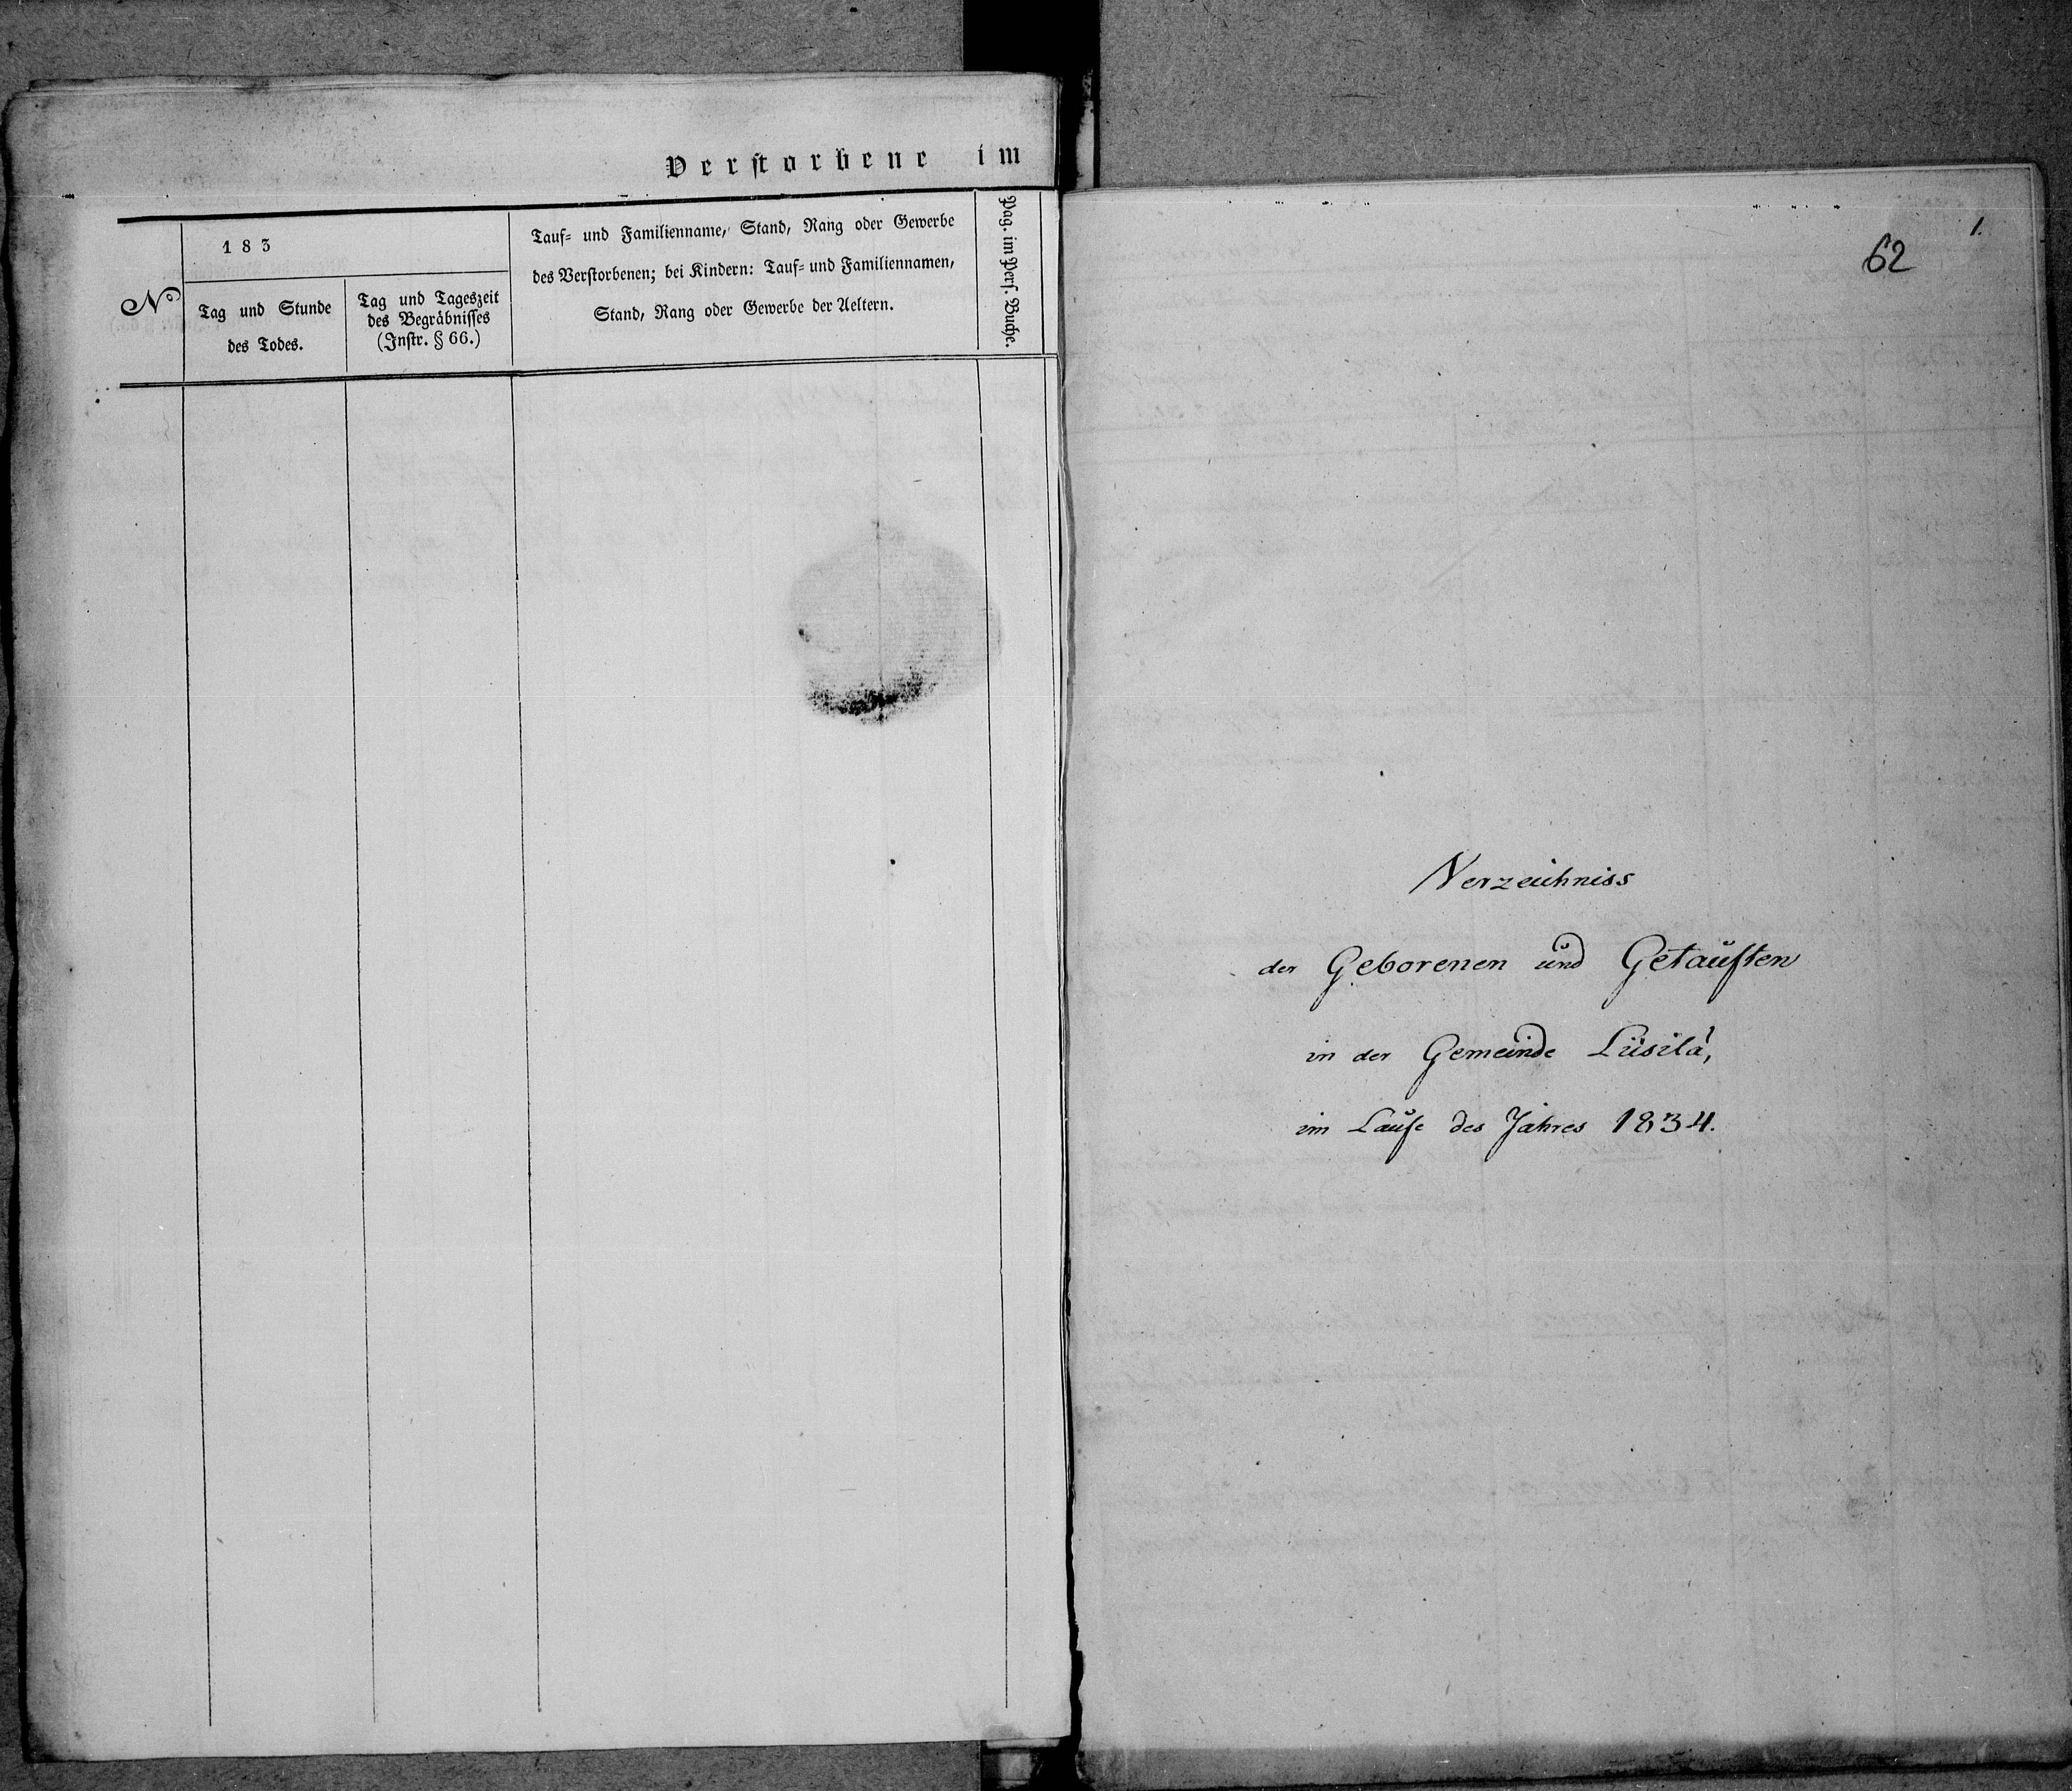 Verstorbene im
183
Nº
Tag und Stunde
des Todes.
Tag und Tageszeit
des Begräbnisses
(Instr. § 66.)
Tauf- und Familienname, Stand, Rang oder Gewerbe
des Verstorbenen; bei Kindern: Tauf- und Familiennamen,
Stand, Rang oder Gewerbe der Aeltern.
Pag. im Pers. Buche.
1.
62
Verzeichniss
der Geborenen und Getauften
in der Gemeinde
im Laufe des Jahres 1834.